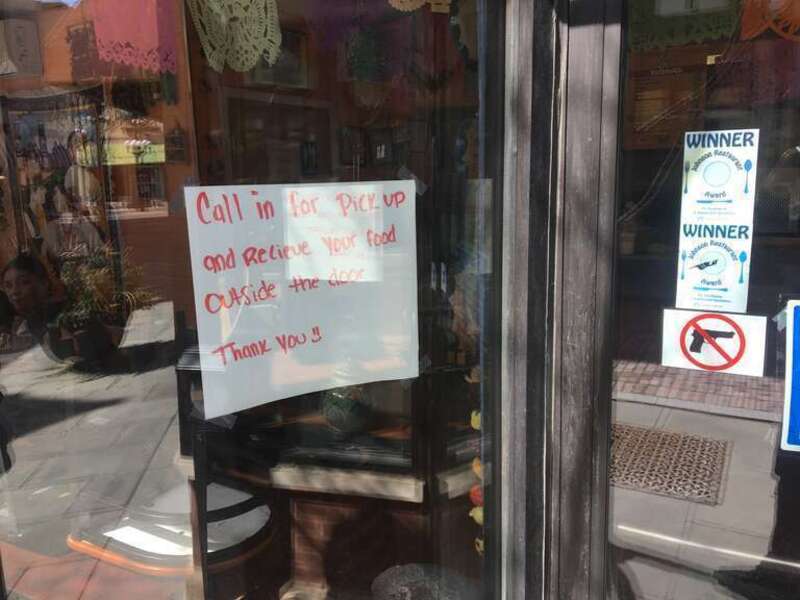 Call in for Pick up
and Recieve Your food
outside the door
Thank you!!
WINNER
Johnson Restaurant
Award
WINNER
Johnson Restaurant
Award